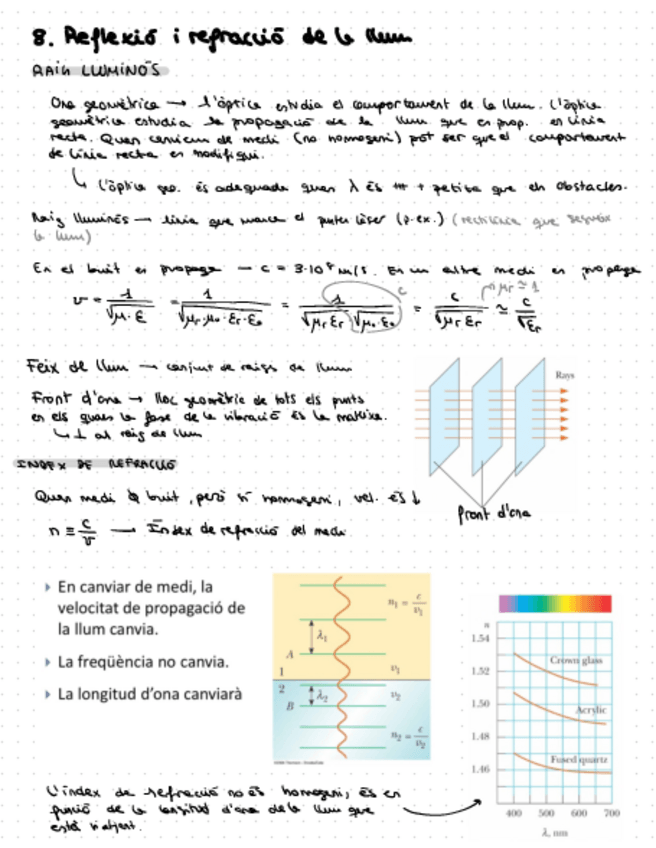 8. Reflexió i refracció de la llum
RAIG LLUMINÓS
Ona geomètrica → L'òptica estudia el comportament de la llum. L'òptica
geomètrica estudia la propagació de la llum que es prop. en línia
recta. Quan canviem de medi (no homogeni) pot ser que el comportament
de línia recta es modifiqui.
↳ L'òptica geo. és adequada quan λ és + petita que els obstacles.
Raig lluminós — línia que marca el punter làser (p.ex.) (rectilínia que segueix
la llum)
En el buit es propaga — c = 3·10⁸ m/s. En un altre medi es propaga
μr ≃ 1
v = 1/√(μ·ε) = 1/√(μr·μo·εr·εo) = 1/(√(μr εr) √(μo·εo)) = c/√(μr εr) ≃ c/√εr
Feix de llum → conjunt de raigs de llum
Front d'ona → lloc geomètric de tots els punts
en els quals la fase de la vibració és la mateixa.
↳ ⊥ al raig de llum
Rays
front d'ona
ÍNDEX DE REFRACCIÓ
Quan medi buit, però sí homogeni, vel. és ↓
n ≡ c/v — Índex de refracció del medi
▸ En canviar de medi, la
velocitat de propagació de
la llum canvia.
▸ La freqüència no canvia.
▸ La longitud d'ona canviarà
n₁ = c/v₁
λ₁
A
1
v₁
2
λ₂
v₂
B
n₂ = c/v₂
n
1.54
Crown glass
1.52
1.50
Acrylic
1.48
Fused quartz
1.46
400 500 600 700
λ, nm
L'índex de refracció no és homogeni, és en
funció de la longitud d'ona de la llum que
està viatjant.